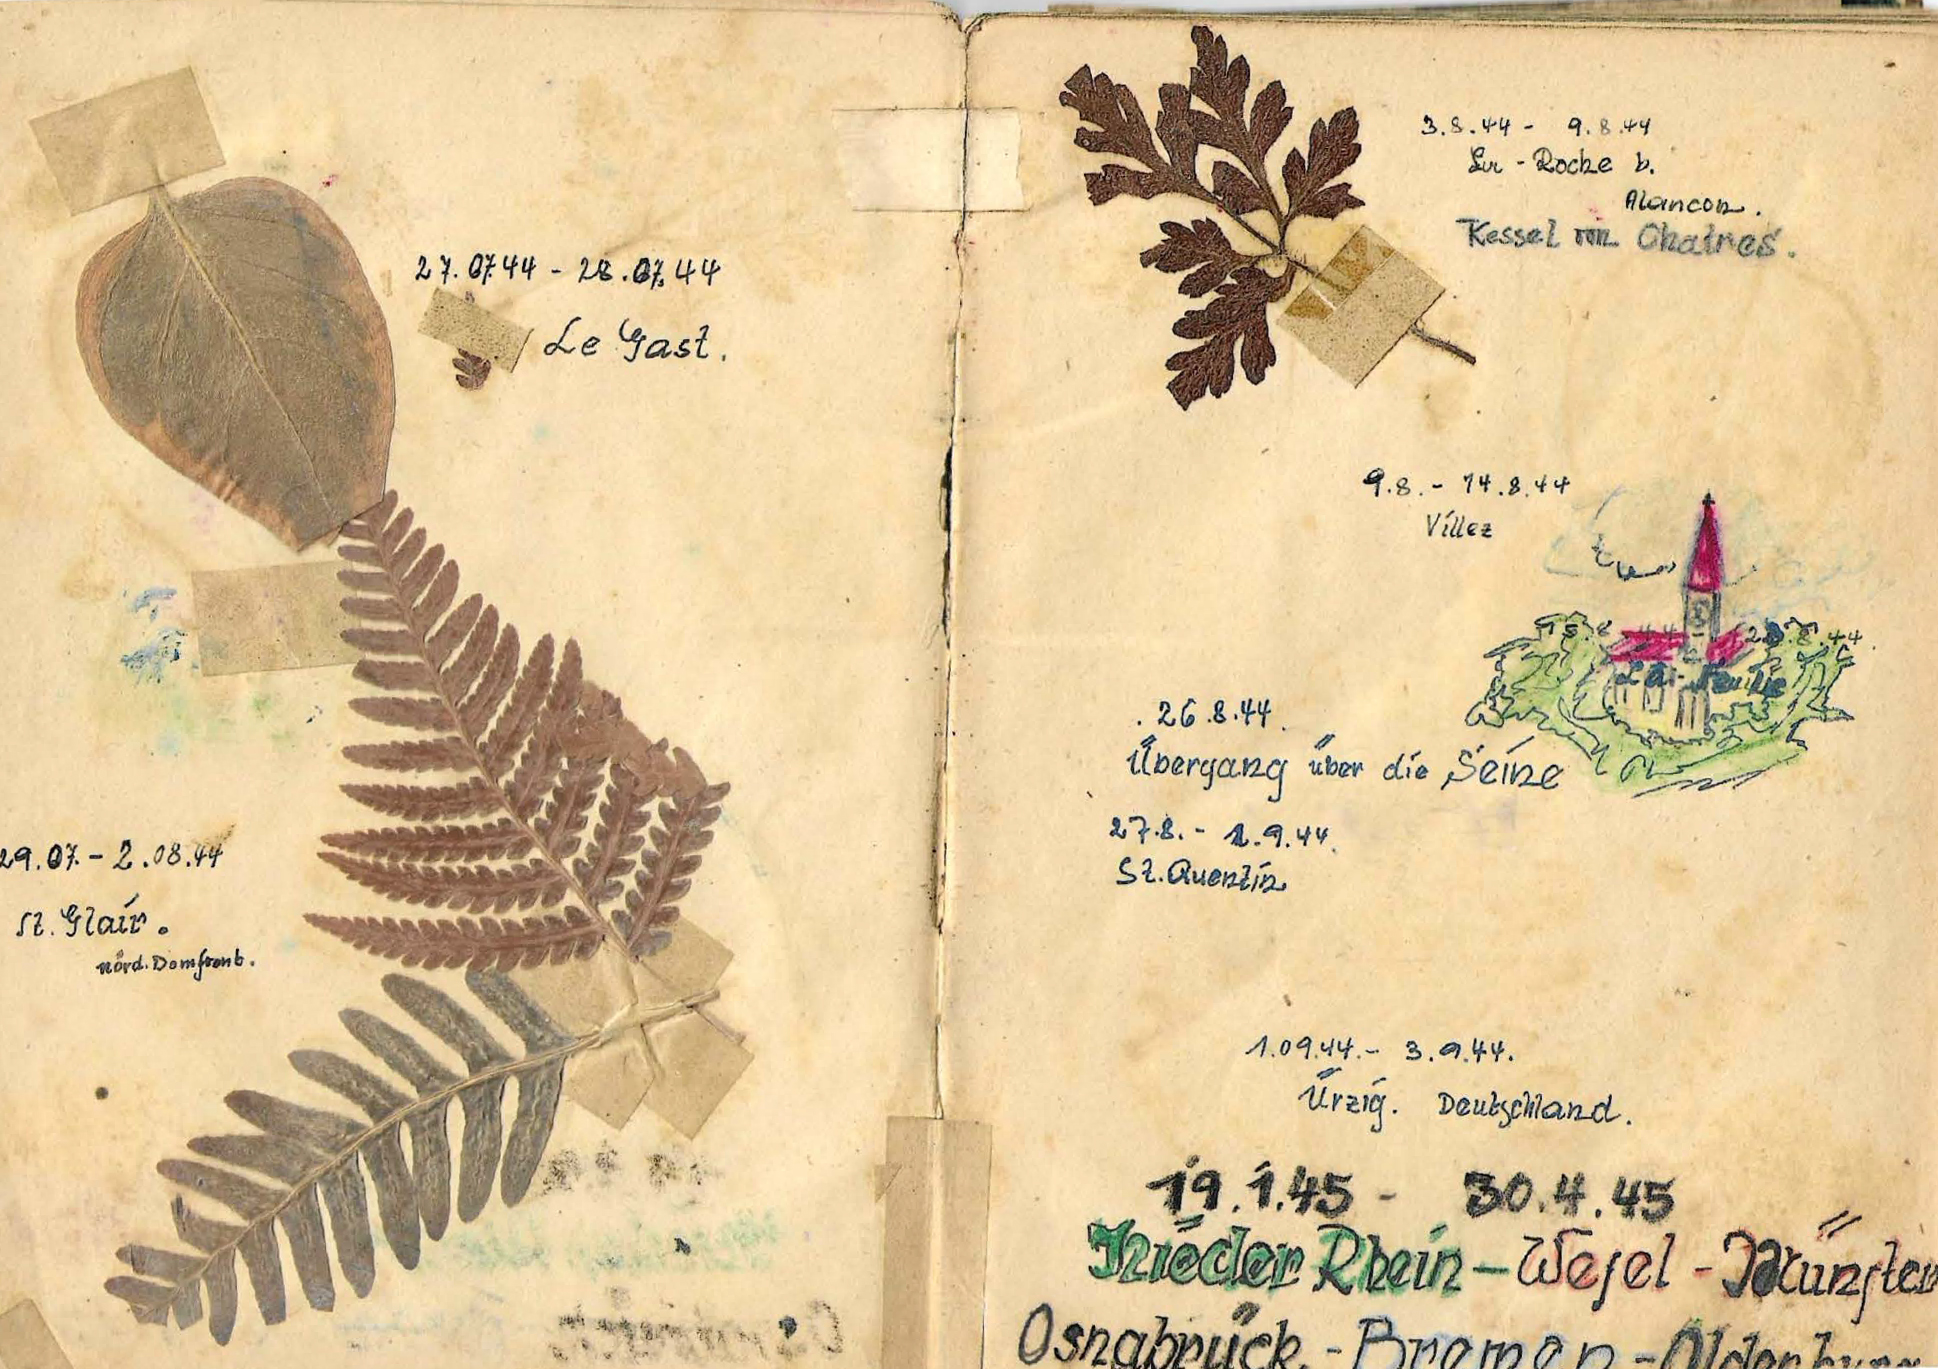 27.07.44 - 28.07.44
Le Gast.
29.07. - 2.08.44
St. Glair.
nörd. Domfronb.
3.8.44 - 9.8.44
La - Roche b.
Alancon.
Kessel von Chatres.
9.8. - 14.8.44
Villez
15.8.44 - 25.8.44
La - Feullie
26.8.44.
Übergang über die Seine
27.8. - 1.9.44.
St. Quentin
1.09.44. - 3.9.44.
Ürzig. Deutschland.
19.1.45 - 30.4.45
Nieder Rhein - Wesel - Münster
Osnabrück - Bremen - Oldenburg